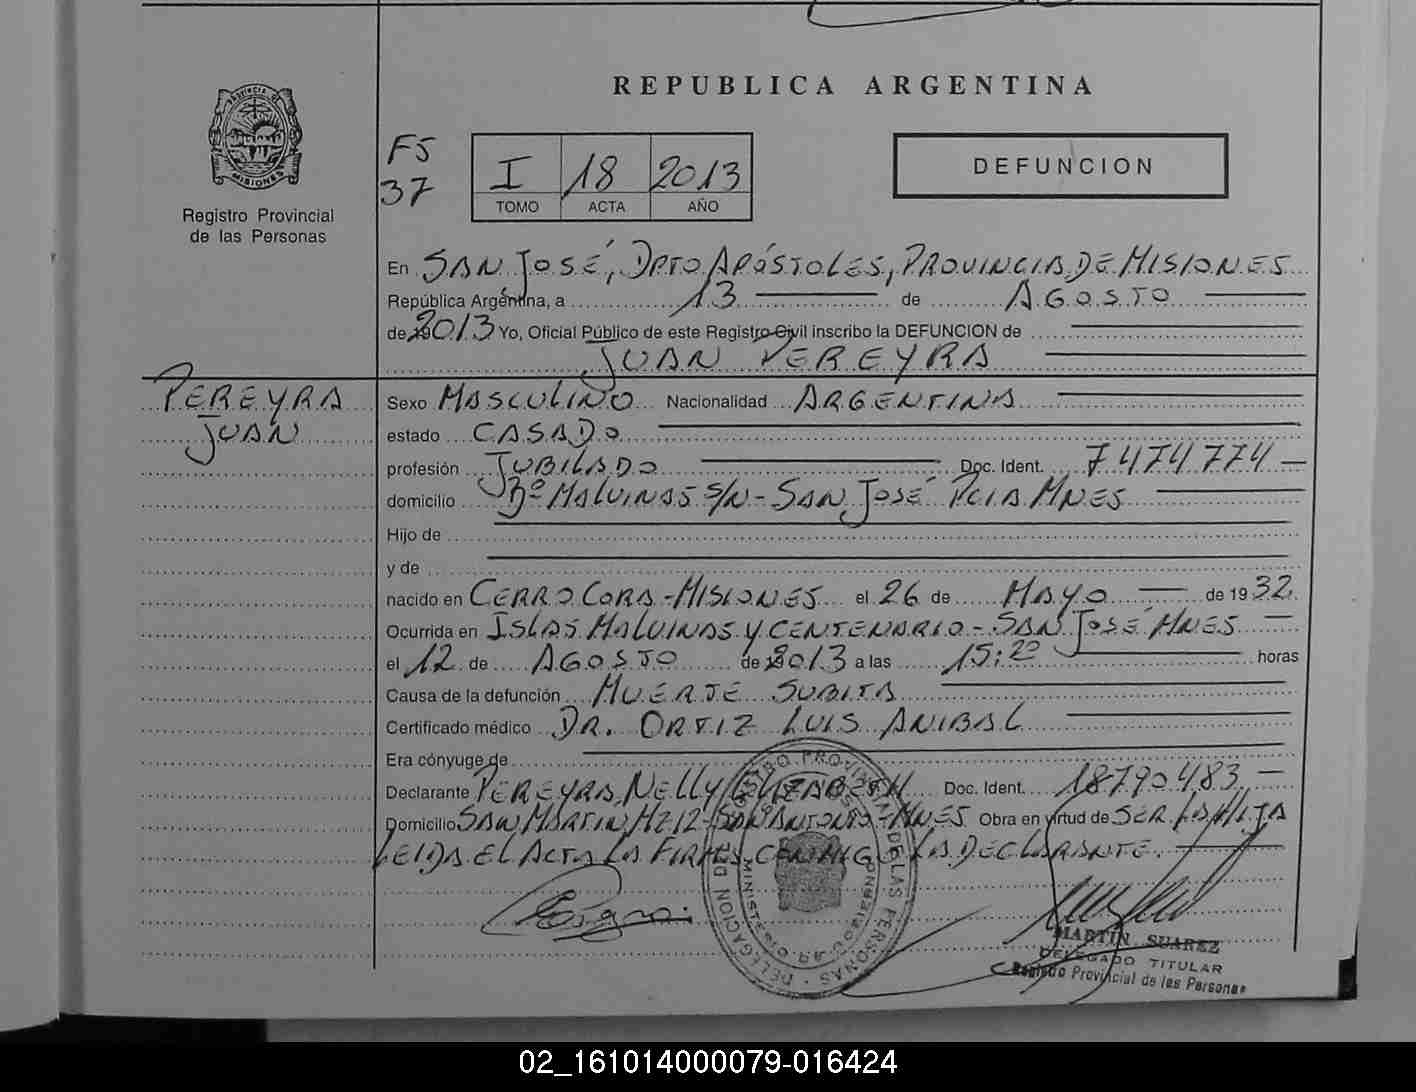 REPUBLICA ARGENTINA
PROVINCIA DE
MISIONES
Registro Provincial
de las Personas
F5
37
I 18 2013
TOMO ACTA AÑO
DEFUNCION
En SAN JOSÉ, DPTO APÓSTOLES, PROVINCIA DE MISIONES
República Argentina, a 13 de AGOSTO
de 2013 Yo, Oficial Público de este Registro Civil inscribo la DEFUNCION de
JUAN PEREYRA
PEREYRA
JUAN
Sexo MASCULINO Nacionalidad ARGENTINA
estado CASADO
profesión JUBILADO Doc. Ident. 7474774
domicilio Bº MALVINAS S/N - SAN JOSÉ PCIA MNES
Hijo de
y de
nacido en CERRO CORA - MISIONES el 26 de MAYO de 1932
Ocurrida en ISLAS MALVINAS Y CENTENARIO - SAN JOSÉ MNES
el 12 de AGOSTO de 2013 a las 15:20 horas
Causa de la defunción MUERTE SUBITA
Certificado médico DR. ORTIZ LUIS ANIBAL
Era cónyuge de
Declarante PEREYRA NELLY ELIZABETH Doc. Ident. 18790483
Domicilio SAN MARTIN MZ 12 - SAN ANTONIO - MNES Obra en virtud de SER LA HIJA
LEIDA EL ACTA LA FIRMA CONMIGO LA DECLARANTE.
MARTIN SUAREZ
DELEGADO TITULAR
Registro Provincial de las Personas
02_161014000079-016424